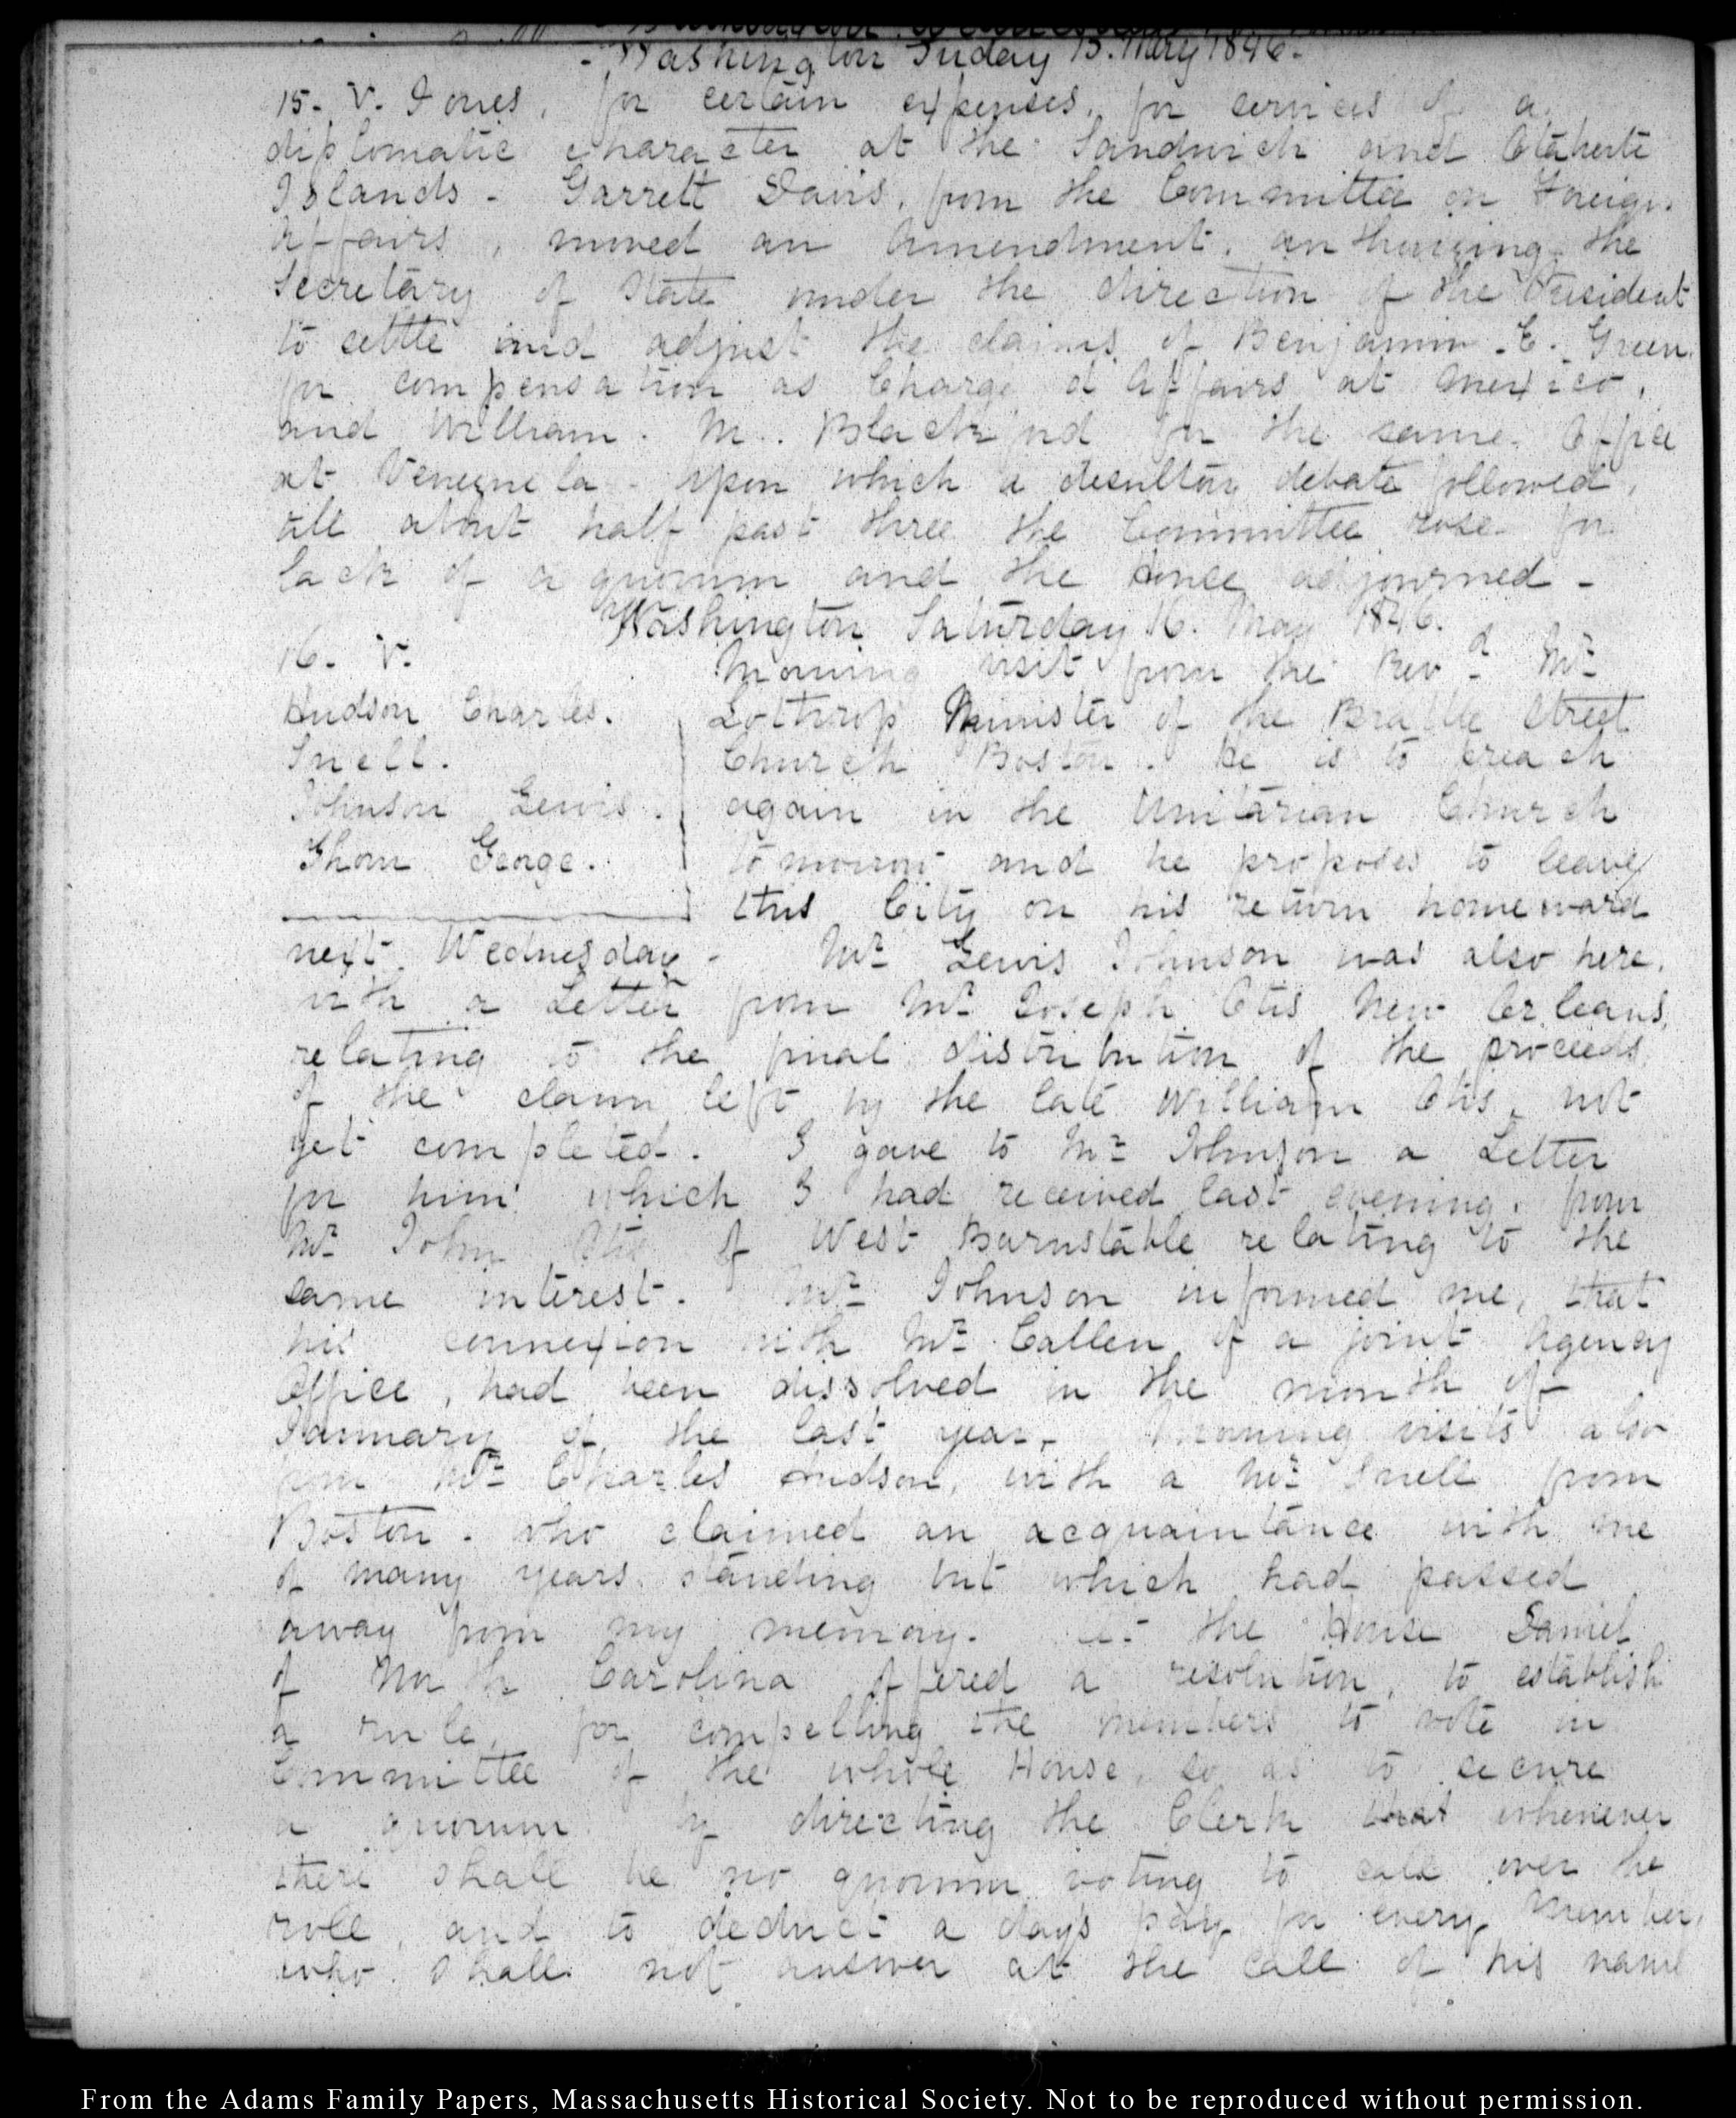 Washington Friday 15. May 1846.
15. V. Jones, for certain expenses, for services of a
diplomatic character at the Sandwich and Otaheite
Islands - Garrett Davis, from the Committee on Foreign
Affairs, moved an amendment, authorizing the
Secretary of State under the direction of the President
to settle and adjust the claims of Benjamin E. Green
for compensation as Chargé d'Affairs at Mexico,
and William. M. Blackford for the same Office
at Venezuela - Upon which a desultory debate followed,
till about half past three the Committee rose for
lack of a quorum and the House adjourned -
Washington Saturday 16. May 1846.
16. V.
Hudson Charles.
Snell.
Johnson Lewis.
Thom George.
Morning visit from the Revd. Mr
Lothrop Minister of the Brattle Street
Church Boston. He is to preach
again in the Unitarian Church
tomorrow and he proposes to leave
this City on his return homeward
next Wednesday - Mr Lewis Johnson was also here,
with a Letter from Mr Joseph Otis New Orleans,
relating to the final distribution of the proceeds
of the claim left by the late William Otis, not
yet completed. I gave to Mr Johnson a Letter
for him which I had received last evening, from
Mr John Otis of West Barnstable relating to the
same interest. Mr Johnson informed me, that
his connexion with Mr Callen of a joint Agency
Office, had been dissolved in the month of
January of the last year, Morning visits also
from Mr Charles Hudson, with a Mr Snell from
Boston - who claimed an acquaintance with me
of many years standing but which had passed
away from my memory. At the House Daniel
of North Carolina offered a resolution, to establish
a rule, for compelling the members to vote in
Committee of the whole House, so as to secure
a quorum by directing the Clerk that whenever
there shall be no quorum voting to call over the
roll, and to deduct a day's pay for every Member,
who shall not answer at the call of his name
From the Adams Family Papers, Massachusetts Historical Society. Not to be reproduced without permission.